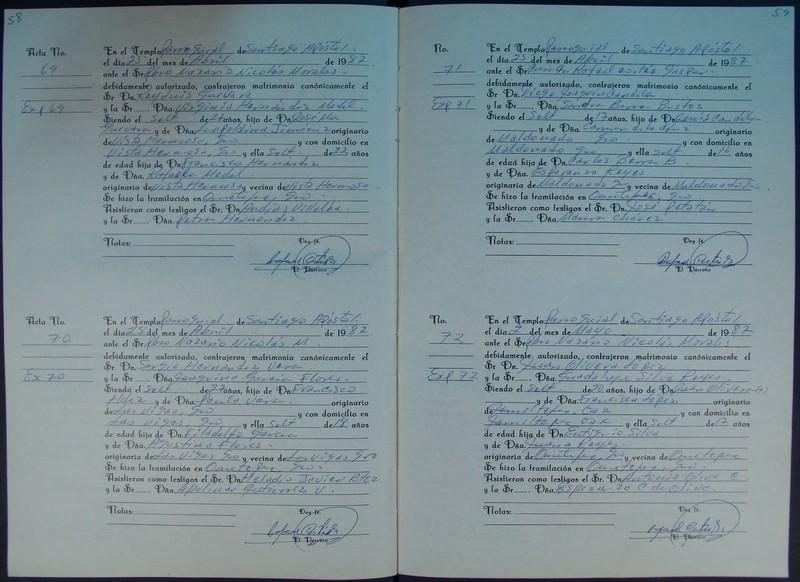 58
Acta No.
69
Exp 69
En el Templo Parroquial de Santiago Apóstol.
el día 25 del mes de Abril de 1987
ante el Sr. Pbro Nazario Nicolás Morales.
debidamente autorizado, contrajeron matrimonio canónicamente el
Sr. Dn. Guevara
y la Sr. Dña. Virginia Hernández Medel.
Siendo el Solt de 21 años, hijo de
Guevara y de Dña. Leopoldina Jimenez originario
de Vista Hermosa, Gro y con domicilio en
Vista Hermosa, Gro y ella Solt de 22 años
de edad hija de Dn. Francisco Hernández
y de Dña. Rafaela Medel
originaria de Vista Hermosa y vecina de Vista Hermosa
Se hizo la tramilación en Ometepec, Gro
Asistieron como testigos el Sr. Dn. Villalba.
y la Sr. Dña. Petra Hernández.
Notas:
Doy fe.
El Párroco
Acta No.
70
Ex 70
En el Templo Parroquial de Santiago Apóstol.
el día 25 del mes de Abril de 1987
ante el Sr. Pbro Nazario Nicolás M.
debidamente autorizado, contrajeron matrimonio canónicamente el
Sr. Dn. Sergio Hernández Vara
y la Sr. Dña. Joaquina García Flores.
Siendo el Solt de 22 años, hijo de Dn. Francisco
Hdez y de Dña. Paula Vara. originario
de Las Vigas, Gro y con domicilio en
Las Vigas, Gro y ella Solt de 18 años
de edad hija de Dn. Filadelfo García
y de Dña. Agustina Flores.
originaria de Las Vigas Gro y vecina de Las Vigas Gro
Se hizo la tramilación en Ometepec, Gro.
Asistieron como testigos el Sr. Dn. Heladio Javier
y la Sr. Dña. Apolinar Gutierrez V.
Notas:
Doy fe.
El Párroco
59
No.
71
Exp 71
En el Templo Parroquial de Santiago Apóstol.
el día 25 del mes de Abril de 1987.
ante el Sr. Rafael Gaspar.
debidamente autorizado, contrajeron matrimonio canónicamente el
Sr. Dn. Diego Joaquin Candela
y la Sr. Dña. Sandra Berran Bustos
Siendo el Solt de 17 años, hijo de Dn. Candela
y de Dña. originario
de Maldonado Gro y con domicilio en
Maldonado Gro y ella Solt de 16 años
de edad hija de Dn. Carlos Berran B.
y de Dña. Esperanza Reyes
originaria de Maldonado y vecina de Maldonado Gro
Se hizo la tramilación en Ometepec, Gro
Asistieron como testigos el Sr. Dn. José
y la Sr. Dña. Maura Chávez
Notas:
Doy fe.
El Párroco
72
Exp 72
En el Templo Parroquial de Santiago Apóstol.
el día 2 del mes de Mayo de 1987
ante el Sr. Pbro Nazario Nicolás Morales.
debidamente autorizado, contrajeron matrimonio canónicamente el
Sr. Dn. Juan Olivera López
y la Sr. Dña. Guadalupe Silva Reyes.
Siendo el Solt de 20 años, hijo de Dn. Juan Olivera
y de Dña. Francisca López originario
de Jamiltepec, Oax y con domicilio en
Jamiltepec Oax y ella Solt de 17 años
de edad hija de Dn. Eutiginio Silva
y de Dña. Reyes.
originaria de Ometepec, Gro y vecina de Ometepec
Se hizo la tramilación en Ometepec, Gro.
Asistieron como testigos el Sr. Dn. Antonio Oliva C
y la Sr. Dña. Esperanza C de Oliva.
Notas:
Doy fe.
El Párroco